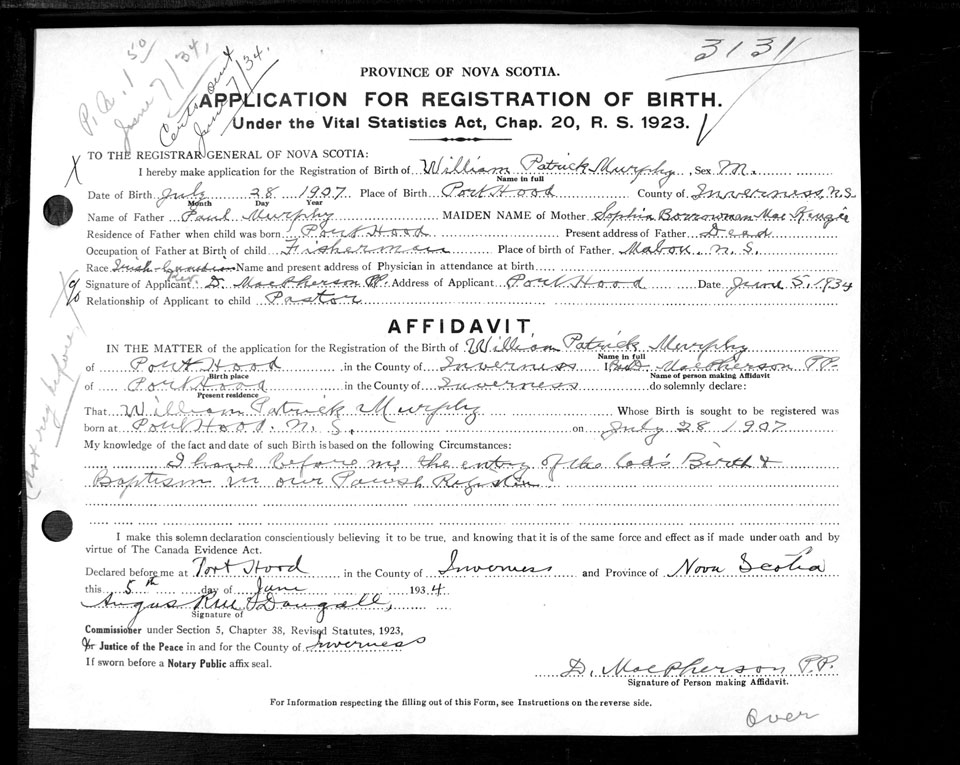 P.N. 1 50
June 7/34.
Cert sent
June 7/34.
3131
PROVINCE OF NOVA SCOTIA.
APPLICATION FOR REGISTRATION OF BIRTH.
Under the Vital Statistics Act, Chap. 20, R. S. 1923.
X TO THE REGISTRAR GENERAL OF NOVA SCOTIA:
I hereby make application for the Registration of Birth of William Patrick Murphy, Sex M.
Name in full
Date of Birth July 28 1907 Place of Birth Port Hood County of Inverness, N.S.
Month Day Year
Name of Father Paul Murphy MAIDEN NAME of Mother Sophia Borrowman MacKenzie
Residence of Father when child was born Port Hood Present address of Father Dead
Occupation of Father at Birth of child Fisherman Place of birth of Father Mabou, N.S.
Race Irish-Canadian Name and present address of Physician in attendance at birth
Signature of Applicant Rev. D. MacPherson P.P. Address of Applicant Port Hood Date June 5, 1934
Relationship of Applicant to child Pastor
(Not reg before.)
AFFIDAVIT.
IN THE MATTER of the application for the Registration of the Birth of William Patrick Murphy
Name in full
of Port Hood in the County of Inverness I Rev. D. MacPherson P.P.
Birth place Name of person making Affidavit
of Port Hood in the County of Inverness do solemnly declare:
Present residence
That William Patrick Murphy Whose Birth is sought to be registered was
born at Port Hood. N.S. on July 28 1907
My knowledge of the fact and date of such Birth is based on the following Circumstances:
I have before me the entry of the lad's Birth &
Baptism in our Parish Register
I make this solemn declaration conscientiously believing it to be true, and knowing that it is of the same force and effect as if made under oath and by
virtue of The Canada Evidence Act.
Declared before me at Port Hood in the County of Inverness and Province of Nova Scotia
this 5th day of June 1934
Angus McDougall,
Signature of
Commissioner under Section 5, Chapter 38, Revised Statutes, 1923,
Or Justice of the Peace in and for the County of Inverness
If sworn before a Notary Public affix seal.
D. MacPherson P.P.
Signature of Person making Affidavit.
For Information respecting the filling out of this Form, see Instructions on the reverse side.
Over